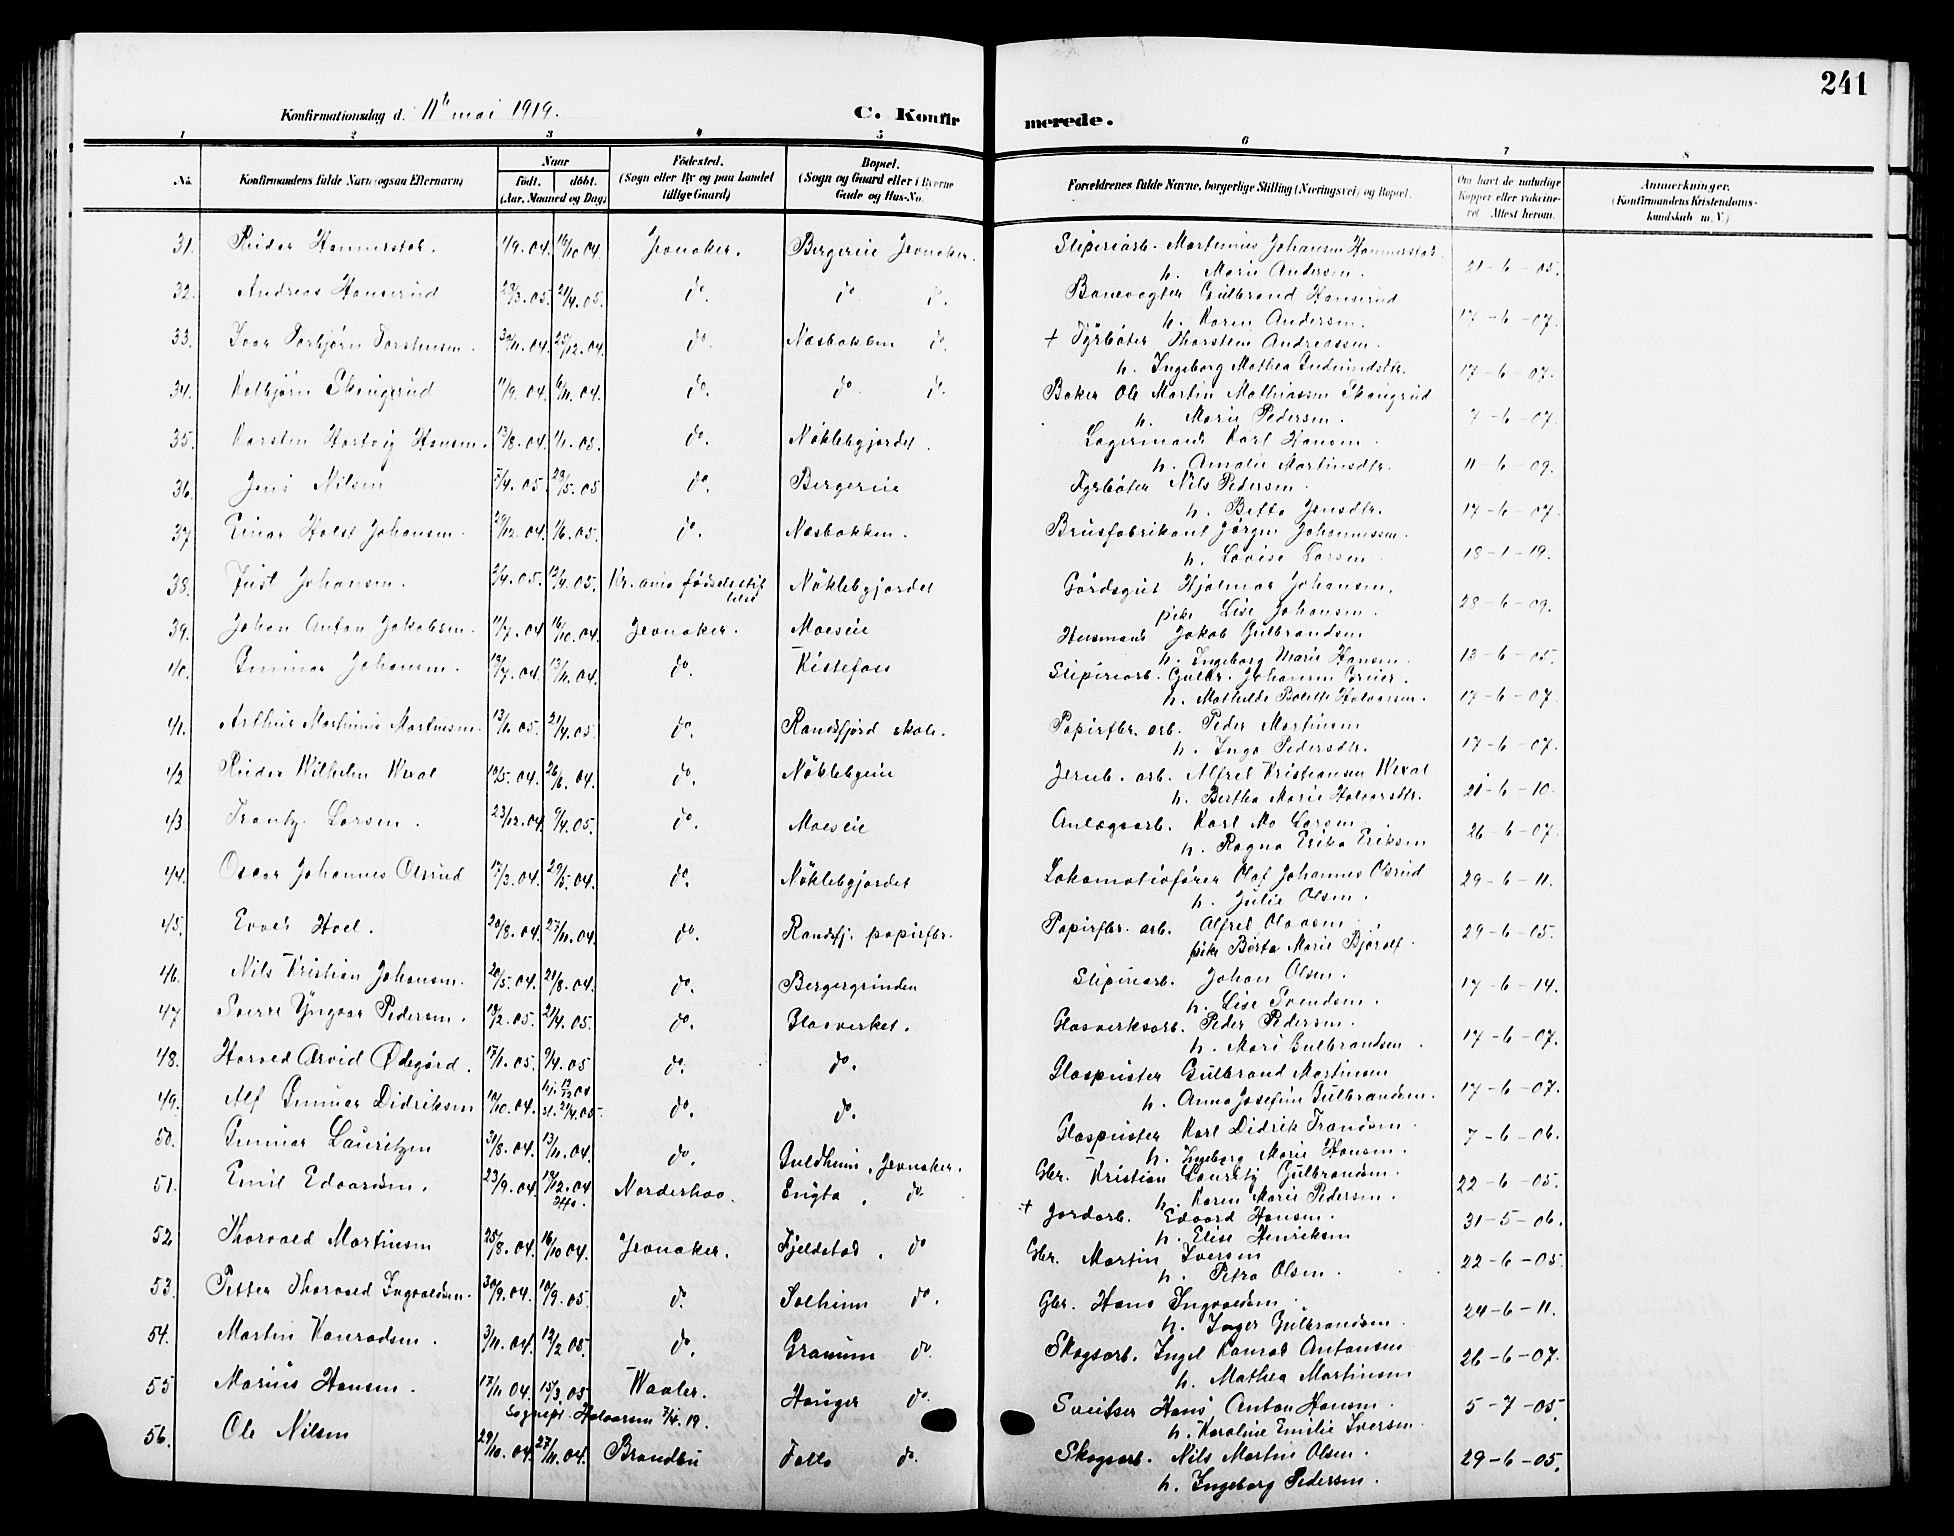 241
Konfirmationsdag d. 11te mai 1919.
C. Konfirmerede.
1 2 3 4 5 6 7 8
No. Konfirmandens fulde Navn (ogsaa Efternavn) Naar födt. döbt. (Aar, Maaned og Dag) Födested. (Sogn eller By og paa Landet tillige Gaard) Bopæl. (Sogn og Gaard eller i Byerne Gade og Hus-No. Forældrenes fulde Navne, borgerlige Stilling (Næringsvei) og Bopæl. Om havt de naturlige Kopper eller vakcineret. Attest herom. Anmerkninger. (Konfirmandens Kristendomskundskab m. V.)
31. Reidar Hammerstad. 1/9.04. 16/10.04. Jevnaker. Bergereie Jevnaker. Sliperiarb. Martinius Johansen Hammerstad.
h. Marie Andersen. 21-6-05.
32. Andreas Hanserud 29/3.05. 21/4.05. do. do do. Banevogter Gulbrand Hanserud
h. Karen Andersen. 17-6-07.
33. Ivar Torbjørn Torstensen. 30/11.04. 25/12.04. do. Næsbakken do. + Fyrbøter Thorsten Andreassen.
h. Ingeborg Mathea Gudmundsdtr. 17-6-07.
34. Kolbjørn Skougrud 11/9.04. 6/11.04. do. do. do. Baker Ole Martin Mathiassen Skougrud
h. Marie Pedersen. 7-6-07.
35. Karsten Hartvig Hansen. 13/8.04. 1/1.05. do. Nøklebygjordet. Lagermand Karl Hansen.
h. Amalie Martinsdtr. 11-6-09.
36. Jens Nilsen 5/4.05. 23/5.05 do. Bergereie Fyrbøter Nils Pedersen.
h. Betta Jensdtr. 17-6-07.
37. Einar Holst Johansen. 29/12.04. 1/6.05. do. Næsbakken. Brusfabrikant Jørgen Johannessen.
h. Lovise Larsen. 18-1-19.
38. Just Johansen. 2/4.05. 12/4.05. Kr.ania fødselsstiftelse Nøklebygjordet Gårdsgut Hjalmar Johansen.
pike Lise Johansen. 28-6-09.
39. Johan Anton Jakobsen. 17/7.04 16/10.04. Jevnaker. Moeseie Husmand Jakob Gulbrandsen
h. Ingeborg Marie Hansen. 13-6-05.
40. Gunnar Johansen. 19/7.04. 13/11.04. do. Kistefoss Sliperiarb. Gulbr. Johansen Greier.
h. Mathilde Bolette Halvorsen. 17-6-07.
41. Arthur Martinius Martinsen. 13/1.05. 21/4.05. do. Randsfjord skole. Papirfbr. arb. Peder Martinsen
h. Inga Pedersdtr. 17-6-07.
42 Reidar Wilhelm Wexal 19/5.04. 26/6.04. do. Nøklebyeie Jernb. arb. Alfred Kristiansen Wexal
h. Bertha Marie Halvorsdtr. 21-6-10.
43 Frantz Larsen. 23/12.04. 9/4.05. do. Moeseie Anlægsarb. Karl Mo Larsen
h. Ragna Erika Eriksen 26-6-07.
44. Oscar Johannes Olsrud 17/3.04. 29/5.04. do. Nøklebygjordet Lokomotivfører Olaf Johannes Olsrud
h. Julie Olsen. 29-6-11.
45. Evald Hoel. 20/8.04. 27/11.04. do. Randsfj. papirfbr. Papirfbr. arb. Alfred Olavsen.
pike Berta Marie 29-6-05.
46. Nils Kristian Johansen. 20/5.04. 21/8.04. do. Bergergrinden Sliperiarb. Johan Olsen.
h. Lise Svendsen. 17-6-14.
47 Sverre Yngvar Pedersen. 18/2.05. 21/4.05. do. Glasverket. Glasverksarb. Peder Pedersen.
h. Mari Gulbrandsen. 17-6-07.
48. Harald Arvid Ødegård. 17/1.05. 9/4.05 do. do. Glaspuster Gulbrand Martinsen
h. Anna Josefine Gulbrandsen. 17-6-07.
49. Alf Gunnar Didriksen 10/10.04. hj. 12/12 04 st. 21/4.05. do. do. Glaspuster Karl Didrik Transen.
h. Ingeborg Marie Hansen. 7-6-06.
50. Gunnar Lauritzen 31/8.04. 13/11.04. do. Guldheim, Jevnaker. Gbr. Kristian Lauritz Gulbrandsen.
h. Karen Marie Pedersen. 22-6-05.
51. Emil Edvardsen. 23/9.04. 14/12.04 Norderhov. Engta, do. + Jordarb. Edvard Hansen.
h. Elise Henriksen 31-5-06.
52 Thorvald Martinsen 25/8.04. 16/10.04. Jevnaker. Fjeldstad, do Gbr. Martin Iversen
h. Petra Olsen. 22-6-05.
53. Petter Thorvald Ingvaldsen. 30/9.04. 10/9.05. do. Solheim do. Gbr. Hans Ingvaldsen.
h. Inger Gulbrandsen. 24-6-11.
54. Martin Konradsen. 3/11.04. 12/2 05. do. Granum do. Skogsarb. Ingel Konrad Antonsen
h. Mathea Martinsen 26-6-07.
55 Marius Hansen. 17/11 04. 15/3.05. Waaler. Hauger do. Sveitser Hans Anton Hansen.
Sognepr. Halvorsen 7/4.19.
h. Karoline Emilie Iversen. 5-7-05.
56. Ole Nilsen 29/10.04. 27/11.04. Brandbu Falla do. Skogsarb. Nils Martin Olsen.
h. Ingeborg Pedersen. 29-6-05.